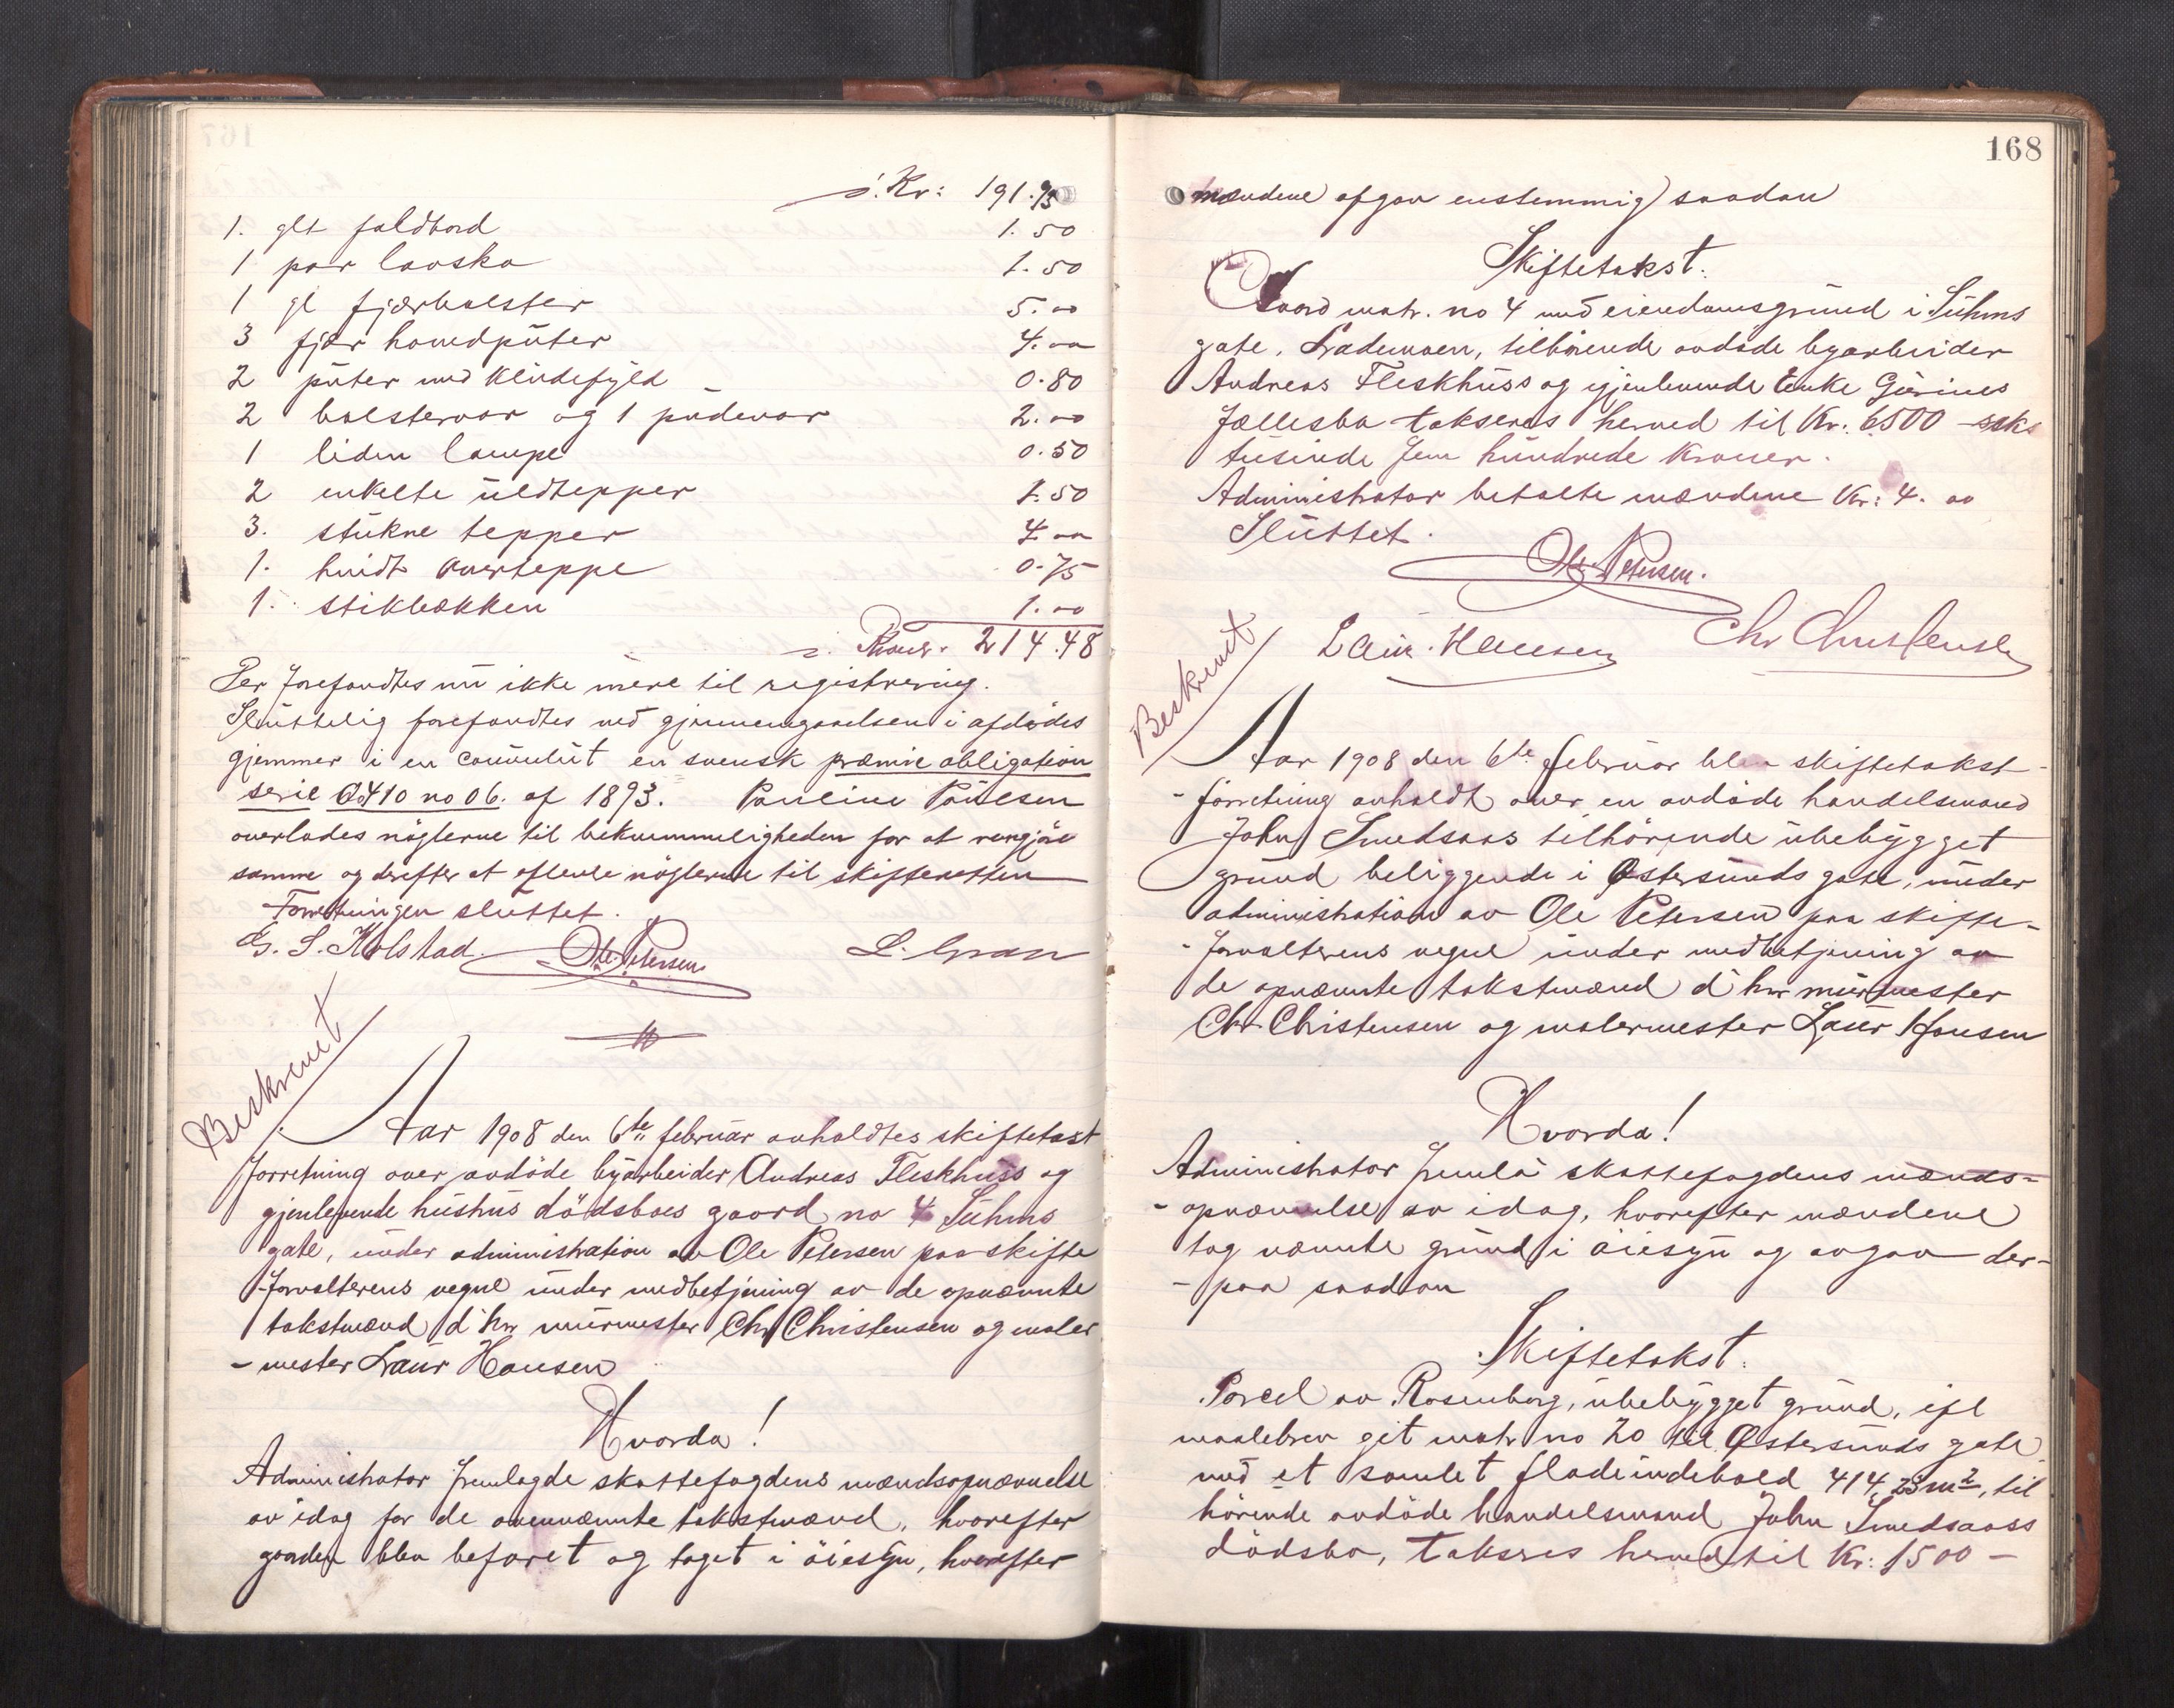 s. Kr: 191.93
1. glt foldbord 1.50
1 par lavsko 1.50
1 gl fjærbolster 5.00
3 fjær hovedputer 4.00
2 puter med Kludefyld 0.80
2 bolstervar og 1 pudevar 2.00
1 liden lampe 0.50
2 enkelte uldtepper 1.50
3. stukne tepper 4.00
1. hvidt overteppe 0.75
1. stikbækken 1.00
s. Kroner. 214.48
Der forefandtes nu ikke mere til registrering.
Sluttelig forefandtes ved gjennemgaaelsen i afdødes
gjemmer i en couvulut en svensk præmie obligation
serie no 06. af 1893. Pauline Paulsen
overlodes nøglerne til bekvemmeligheden for at rengjøre
samme og derefter at aflevere nøglerne til skifteretten
Forretningen sluttet.
G. S. Kolstad. Ole Petersen L. Gran
Beskrevet
Aar 1908 den 6te februar avholdtes skiftetaxt
forretning over avdöde byarbeider Andreas Fleskhuss og
gjenlevende hustrus dödsboes gaard no 4 Suhms
gate, under administration av Ole Petersen paa skifte
-forvalterens vegne under medbetjening av de opnævnte
takstmænd d'hrr murmester Chr Christensen og maler
- mester Laur Hansen
Hvorda!
Administrator fremlagde skattefogdens mændsopnævnelse
av idag for de ovennævnte takstmænd, hvorefter
gaarden blev befaret og taget i öiesyn, hvorefter
168
mændene afgav enstemmig saadan
Skiftetakst.
Gaard matr. no 4 med eiendomsgrund i Suhms
gate, Lademoen, tilhörende avdöde byarbeider
Andreas Fleskhuss og gjenlevende Enke Gurines
fællesbo takseres herved til Kr. 6500 - seks
tusinde fem hundrede Kroner.
Administrator betalte mændene Kr: 4.00
Sluttet.
Ole Petersen.
Laur. Hansen Chr Christensen
Beskrevet
Aar 1908 den 6te februar blev skiftetakst-
-forretning avholdt over en avdöde handelsmand
John Smedsaas tilhörende ubebygget
grund beliggende i Østersunds gate, under
administration av Ole Petersen paa skifte-
-forvalterens vegne under medbetjening av
de opnævnte takstmænd d'hrr murmester
Chr Christensen og malermester Laur Hansen
Hvorda!
Administrator fremla skattefogdens mænds-
-opnævnelse av idag, hvorefter mændene
tog nævnte grund i öiesyn og avgav der-
-paa saadan
Skiftetakst.
Parcel av Rosenborg, ubebygget grund, ifl
maalebrev git matr no 20 til Østersunds gate
med et samlet fladeindehold 414,23 m2, til
hörende avdöde handelsmand John Smedsaass
dödsbo, takseres herved til Kr: 1500 -